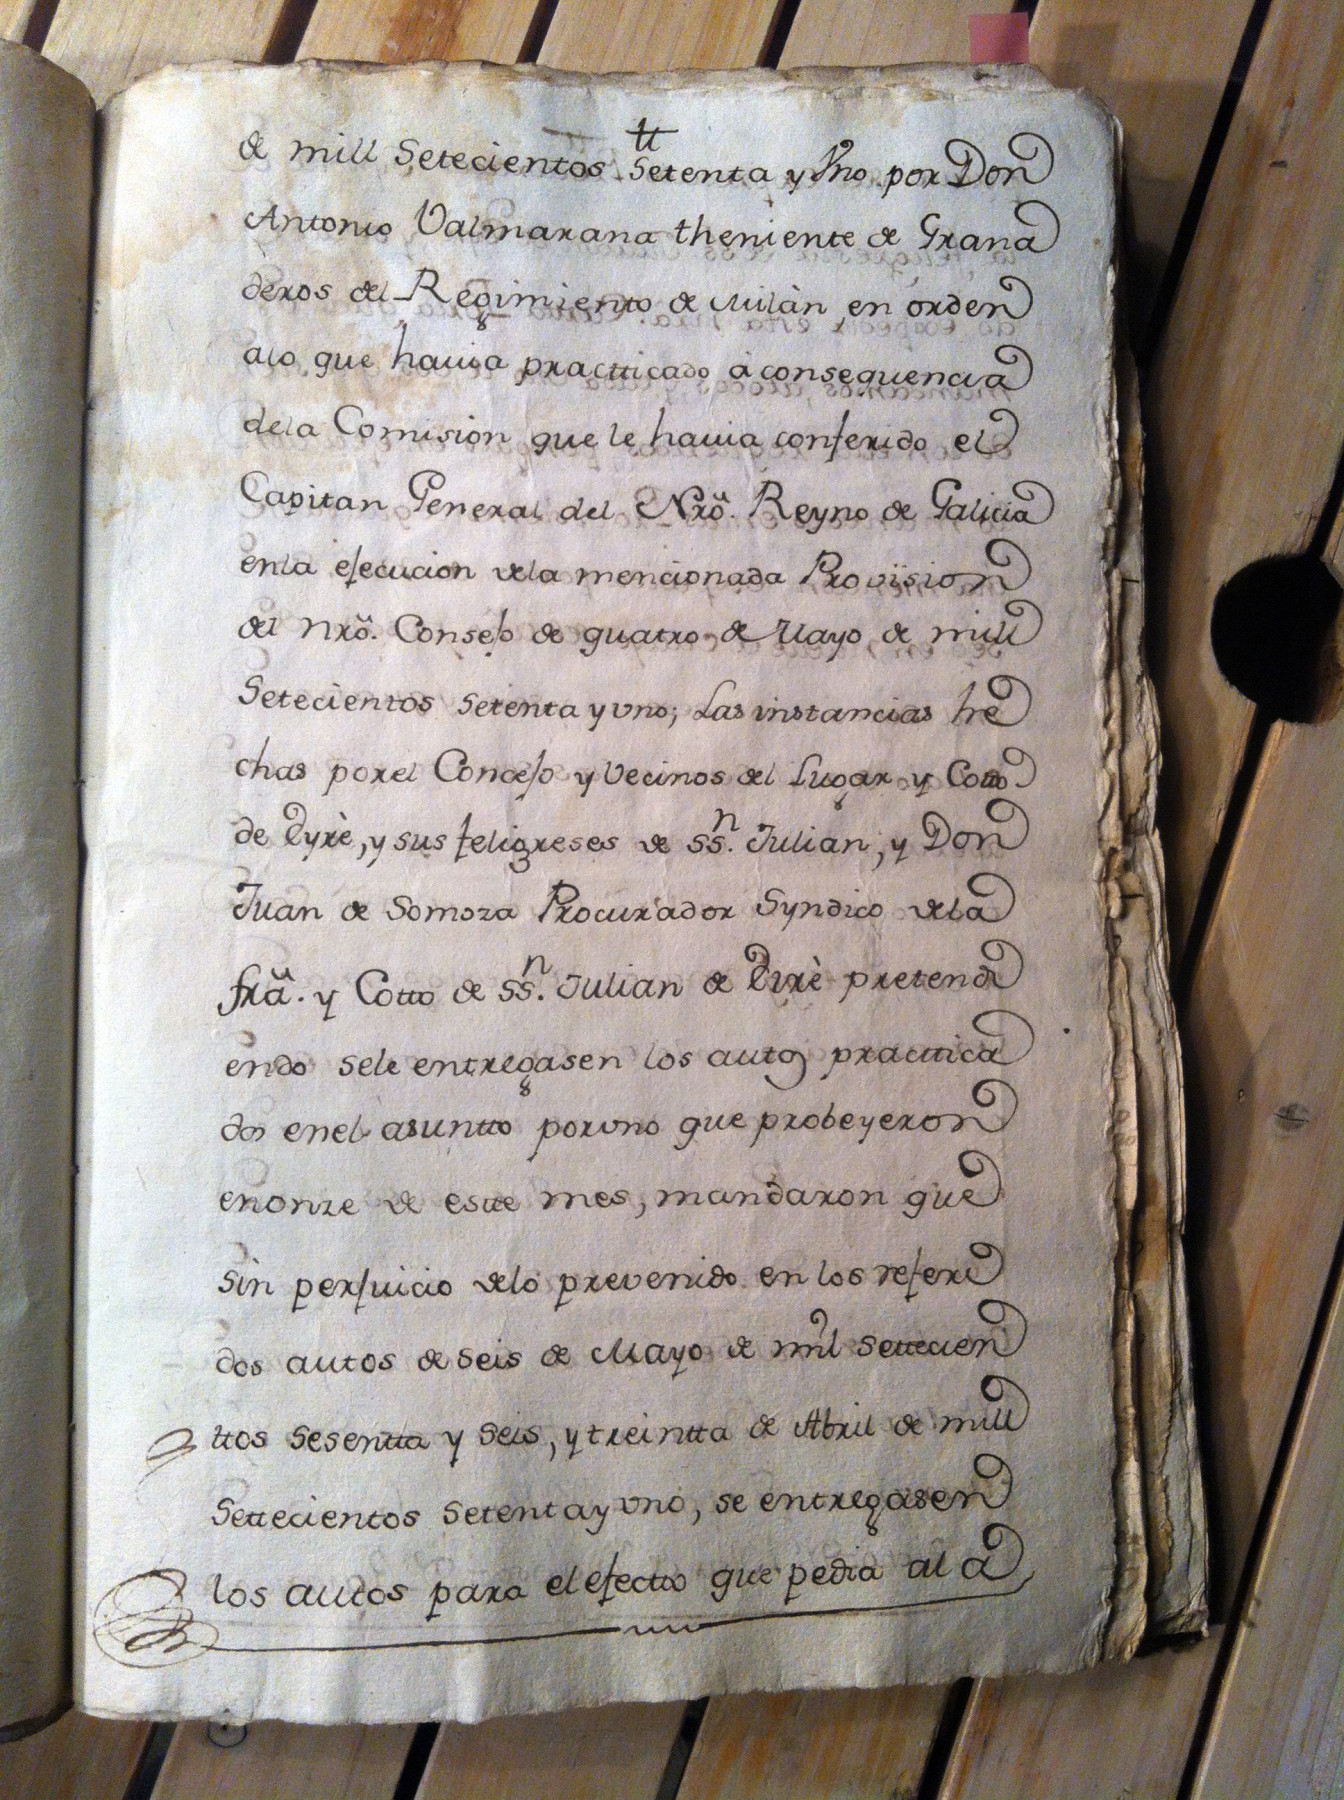 tt
de mill Setecientos Setenta y Vno por Don
Antonio Valmarana theniente de Grana
deros del Regimiento de Milàn en orden
alo que hauia practticado à consequencia
dela Comision que le hauia conferido el
Capitan General del Nrõ. Reyno de Galicia
enla ejecucion dela mencionada Provision
del nrõ. Consejo de quatro de Mayo de mill
Setecientos setenta y vno; Las instancias he
chas porel Concejo y Vecinos del Lugar y Cotto
de Eyrè, y sus feligreses de Ssn. Julian, y Don
Juan de Somoza Procurador Syndico dela
frã. y Cotto de Ssn. Julian de Eyrè pretendi
endo sele entregasen los autos practtica
dos enel asuntto por vno que probeyeron
enonze de estte mes, mandaron que
sin perjuicio delo prevenido en los referi
dos autos de seis de Mayo de mil settecien
ttos sesentta y seis, y treintta de Abril de mill
settecientos setenta y vno, se entregasen
los autos para el efectto que pedia al a